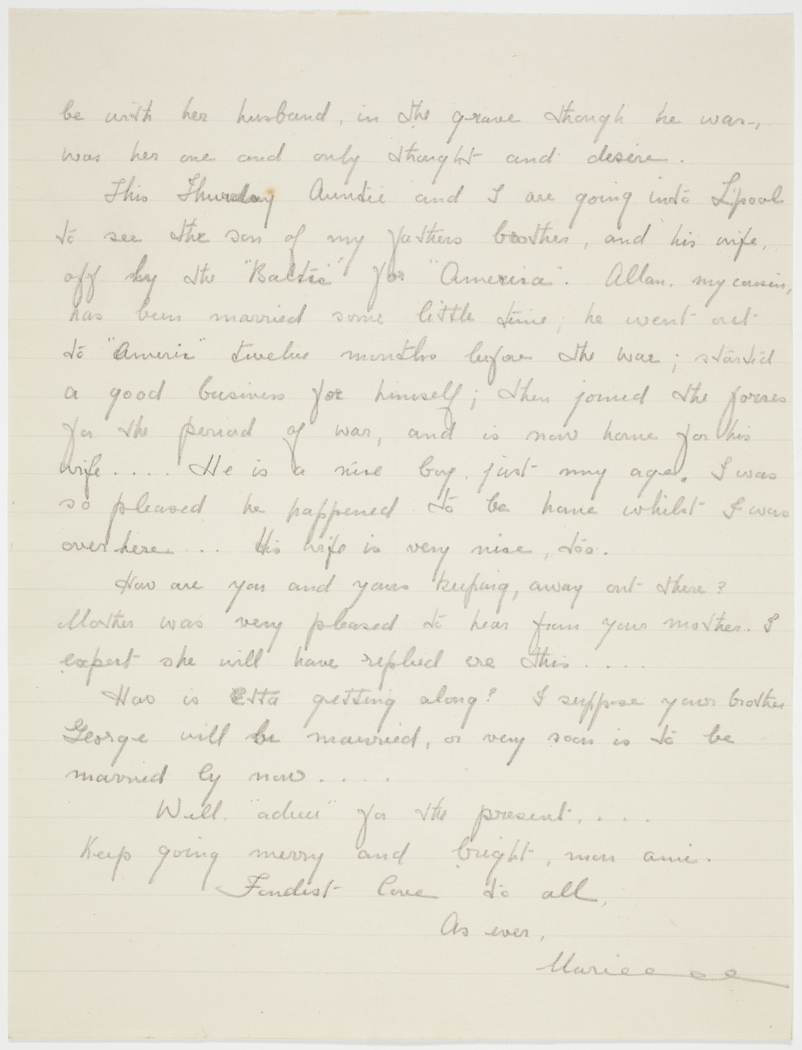 be with her husband, in the grave though he was,
was her one and only thought and desire.
This Thursday Auntie and I are going into L'pool
to see the son of my fathers brother, and his wife,
off by the "Baltic" for "America". Allan, my cousin,
has been married some little time; he went out
to "Americ" twelve months before the war; started
a good business for himself; then joined the forces
for the period of war, and is now home for his
wife.... He is a nice boy, just my age. I was
so pleased he happened to be home whilst I was
over here... His wife is very nice, too.
How are you and yours keeping, away out there?
Mother was very pleased to hear from your mother. I
expect she will have replied ere this.....
How is Etta getting along? I suppose your brother
George will be married, or very soon is to be
married by now....
Well, "adieu" for the present....
Keep going merry and bright, mon ami.
Fondist love to all,
As ever,
Marie